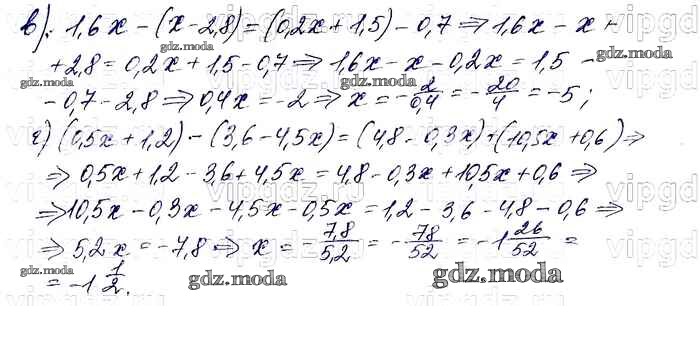 в). 1,6x − (x − 2,8) = (0,2x + 1,5) − 0,7 ⇒ 1,6x − x +
+ 2,8 = 0,2x + 1,5 − 0,7 ⇒ 1,6x − x − 0,2x = 1,5 −
− 0,7 − 2,8 ⇒ 0,4x = −2 ⇒ x = −2/0,4 = −20/4 = −5;
г) (0,5x + 1,2) − (3,6 − 4,5x) = (4,8 − 0,3x) + (10,5x + 0,6) ⇒
⇒ 0,5x + 1,2 − 3,6 + 4,5x = 4,8 − 0,3x + 10,5x + 0,6 ⇒
⇒ 10,5x − 0,3x − 4,5x − 0,5x = 1,2 − 3,6 − 4,8 − 0,6 ⇒
⇒ 5,2x = −7,8 ⇒ x = −7,8/5,2 = −78/52 = −1 26/52 =
= −1 1/2.
gdz.moda
gdz.moda
gdz.moda
gdz.moda
gdz.moda
gdz.moda
gdz.moda
gdz.moda